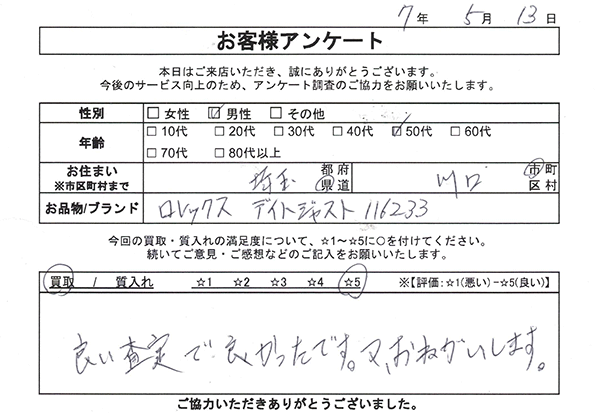 7年 5月 13日
お客様アンケート
本日はご来店いただき、誠にありがとうございます。
今後のサービス向上のため、アンケート調査のご協力をお願いいたします。
性別 □女性 ☑男性 □その他
年齢 □10代 □20代 □30代 □40代 ☑50代 □60代
□70代 □80代以上
お住まい 埼玉 都府 川口 市町
※市区町村まで 県道 区村
お品物/ブランド ロレックス デイトジャスト 116233
今回の買取・質入れの満足度について、☆1～☆5に○を付けてください。
続いてご意見・ご感想などのご記入をお願いいたします。
買取 / 質入れ ☆1 ☆2 ☆3 ☆4 ☆5 ※【評価:☆1(悪い)-☆5(良い)】
良い査定で良かったです。又、おねがいします。
ご協力いただきありがとうございました。